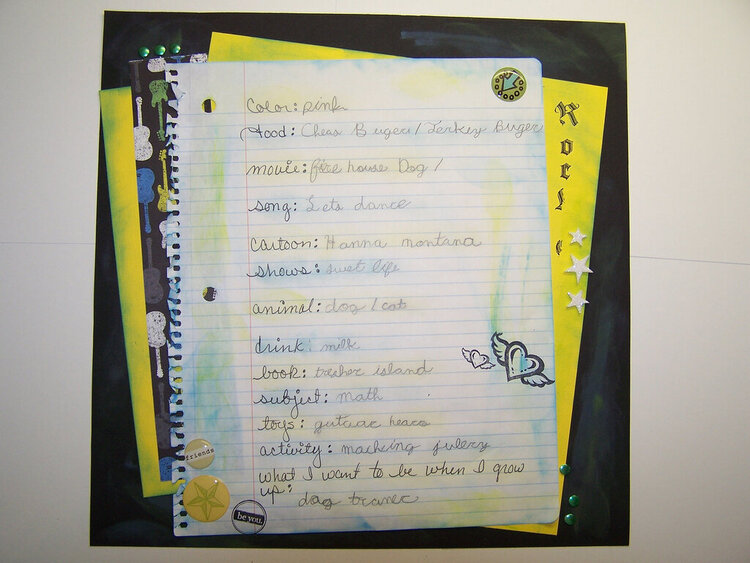 color: pink
food: Cheas Buger / Terkey Buger
movie: fire house Dog /
song: Lets dance
cartoon: Hanna montana
shows: swet life
animal: dog / cat
drink: milk
book: tresher island
subject: math
toys: gutuar hearo
activity: macking julery
what I want to be when I grow
up:
dog traner
friends
be you.
Rock